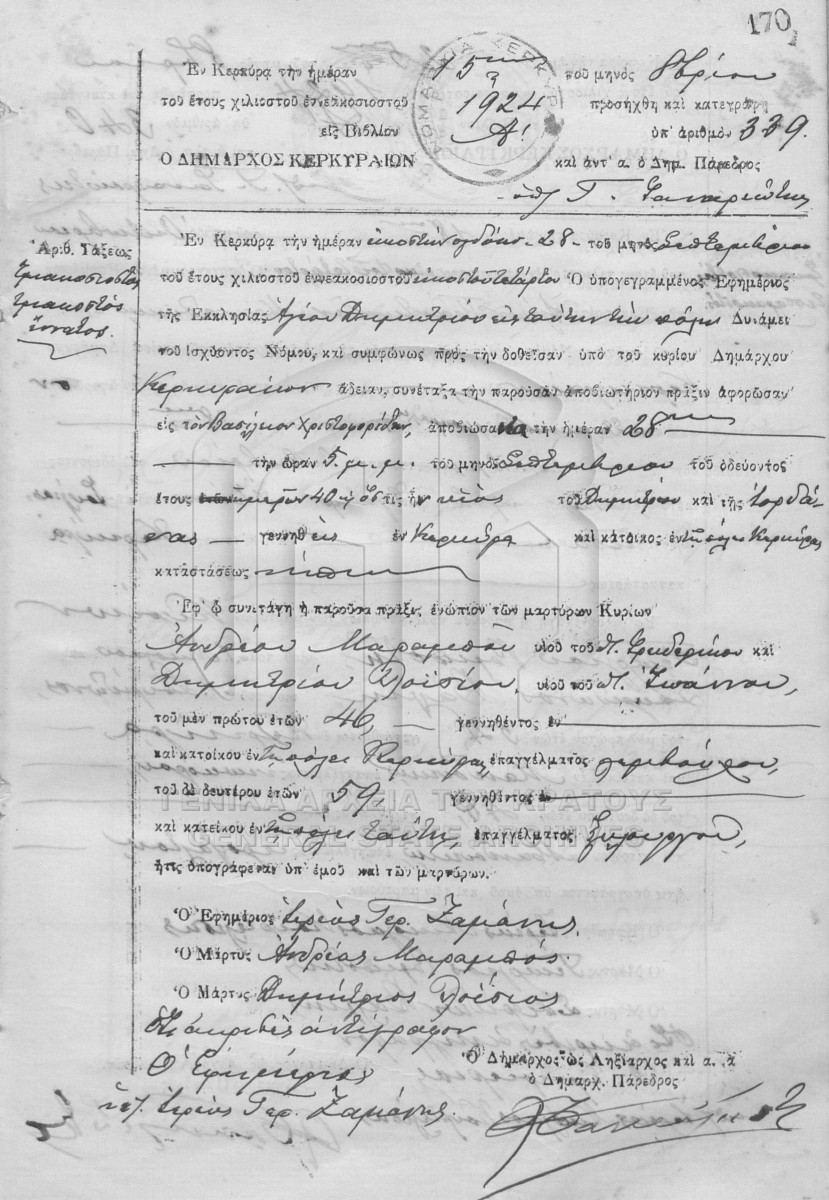 170
Ἐν Κερκύρᾳ τὴν ἡμέραν 15ην τοῦ μηνὸς 8βρίου
τοῦ ἔτους χιλιοστοῦ ἐννεακοσιοστοῦ 1924 προσήχθη καὶ κατεγράφη
εἰς Βιβλίον Α' ὑπ' ἀριθμὸν 339.
Ὁ ΔΗΜΑΡΧΟΣ ΚΕΡΚΥΡΑΙΩΝ καὶ ἀντ' α. ὁ Δημ. Πάρεδρος
ὑπ. Γ.
Ἀριθ. Τάξεως
τριακοσιοστὸς
τριακοστὸς
ἔννατος.
Ἐν Κερκύρᾳ τὴν ἡμέραν εἰκοστὴν ὀγδόην 28 τοῦ μηνὸς Σεπτεμβρίου
τοῦ ἔτους χιλιοστοῦ ἐννεακοσιοστοῦ εἰκοστοῦ τετάρτου Ὁ ὑπογεγραμμένος Ἐφημέριος
τῆς Ἐκκλησίας Ἁγίου Δημητρίου εἰς ταύτην τὴν πόλιν Δυνάμει
τοῦ ἰσχύοντος Νόμου, καὶ συμφώνως πρὸς τὴν δοθεῖσαν ὑπὸ τοῦ κυρίου Δημάρχου
Κερκυραίων ἄδειαν, συνέταξα τὴν παροῦσαν ἀποβιωτήριον πρᾶξιν ἀφορῶσαν
εἰς τὸν Βασίλειον Χριστοφορίδην, ἀποβιώσαντα τὴν ἡμέραν 28ην
τὴν ὥραν 5 μ.μ. τοῦ μηνὸς Σεπτεμβρίου τοῦ ὁδεύοντος
ἔτους ἐτῶν ἡμερῶν 40 ὅστις ἦν υἱὸς τοῦ Δημητρίου καὶ τῆς Ἰορδά-
νας γεννηθεὶς ἐν Κερκύρᾳ καὶ κάτοικος ἐν τῇ πόλει Κερκύρας
καταστάσεως νήπιον
Ἐφ' ᾧ συνετάγη ἡ παροῦσα πρᾶξις ἐνώπιον τῶν μαρτύρων Κυρίων
Ἀνδρέου Μαραμποῦ υἱοῦ τοῦ π. Φρειδερίκου καὶ
Δημητρίου Λοϊσίου, υἱοῦ τοῦ π. Ἰωάννου,
τοῦ μὲν πρώτου ἐτῶν 46, γεννηθέντος ἐν
καὶ κατοίκου ἐν τῇ πόλει Κερκύρας, ἐπαγγέλματος λεμβούχου,
τοῦ δὲ δευτέρου ἐτῶν 59, γεννηθέντος ἐν
καὶ κατοίκου ἐν τῇ πόλει ταύτῃ, ἐπαγγέλματος ξυλουργοῦ,
ἥτις ὑπογράφεται ὑπ' ἐμοῦ καὶ τῶν μαρτύρων.
ΓΕΝΙΚΑ ΑΡΧΕΙΑ ΤΟΥ ΚΡΑΤΟΥΣ
GENERAL STATE ARCHIVES
Ὁ Ἐφημέριος Ἱερεὺς Γερ. Ζαμάνης
Ὁ Μάρτυς Ἀνδρέας Μαραμπός.
Ὁ Μάρτυς Δημήτριος Λοΐσιος
Ὅτι ἀκριβὲς ἀντίγραφον
Ὁ Ἐφημέριος
ὑπ. Ἱερεὺς Γερ. Ζαμάνης.
Ὁ Δήμαρχος ὡς Ληξίαρχος καὶ α. ἀ
ὁ Δημαρχ. Πάρεδρος